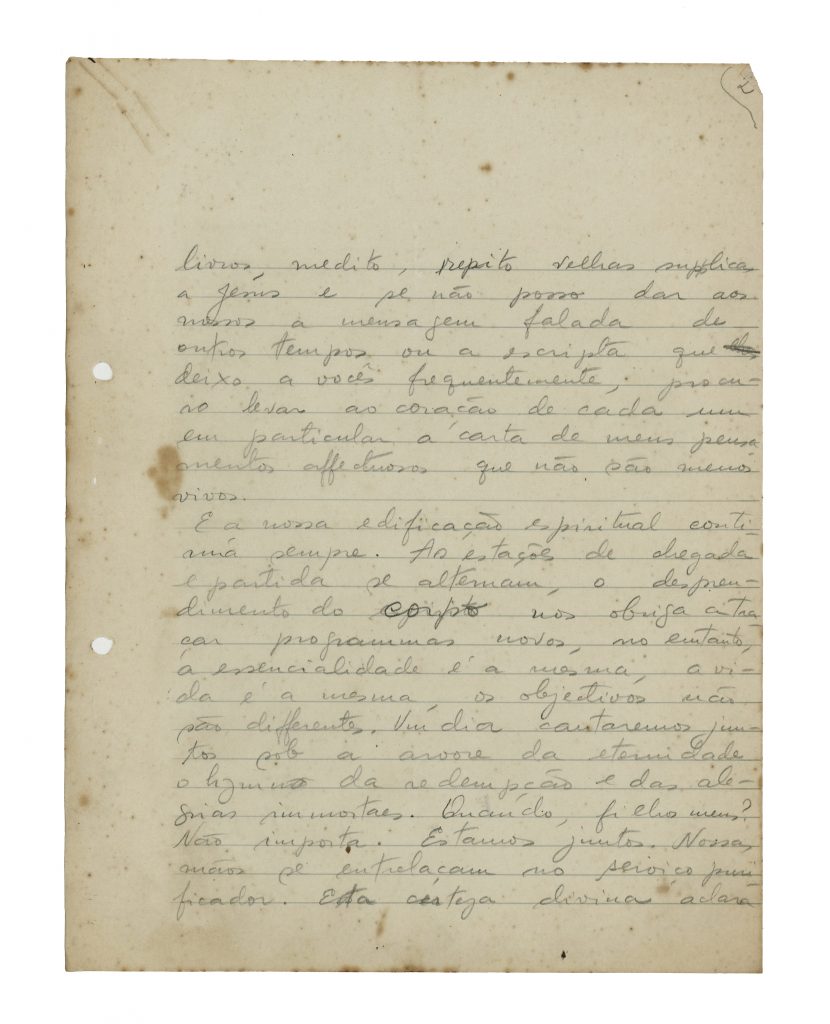 2
livros, medito, repito velhas supplicas
a Jesús e se não posso dar aos
nossos a mensagem falada de
outros tempos ou a escripta que
deixo a vocês frequentemente, procu-
ro levar ao coração de cada um
em particular a carta de meus pensa
mentos affectuosos que não são menos
vivos.
E a nossa edificação espiritual conti-
núa sempre. As estações de chegada
e partida se alternam, o despren-
dimento do corpo nos obriga a tra-
çar programmas novos, no emtanto,
a essencialidade é a mesma, a vi-
da é a mesma, os objectivos não
são differentes. Um dia cantaremos jun-
tos sob a arvore da eternidade
o hymno da redempção e das ale-
grias immortaes. Quando, filho meus?
Não importa. Estamos juntos. Nossas
mãos se entrelaçam no serviço puri-
ficador. Esta certeza divina aclara